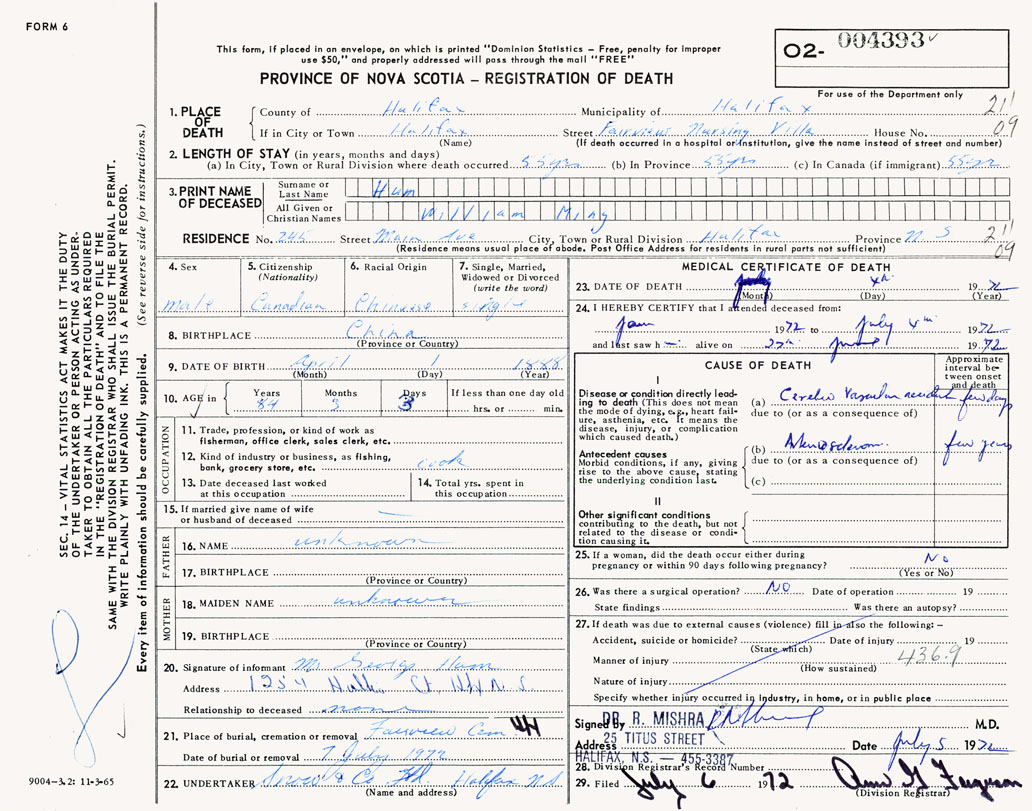 FORM 6
This form, if placed in an envelope, on which is printed "Dominion Statistics – Free, penalty for improper
use $50," and properly addressed will pass through the mail "FREE"
PROVINCE OF NOVA SCOTIA – REGISTRATION OF DEATH
O2- 004393
For use of the Department only
1. PLACE OF DEATH
County of Halifax Municipality of Halifax 211
If in City or Town Halifax Street Fairview Nursing Villa House No. 09
(Name) (If death occurred in a hospital or institution, give the name instead of street and number)
2. LENGTH OF STAY (in years, months and days)
(a) In City, Town or Rural Division where death occurred 55yrs (b) In Province 55yrs (c) In Canada (if immigrant) 55yrs
3. PRINT NAME OF DECEASED
Surname or Last Name Hum
All Given or Christian Names William Ming
RESIDENCE No. 245 Street Main Ave City, Town or Rural Division Halifax Province N S 211
(Residence means usual place of abode. Post Office Address for residents in rural parts not sufficient) 09
4. Sex male
5. Citizenship (Nationality) Canadian
6. Racial Origin Chinese
7. Single, Married, Widowed or Divorced (write the word) single
8. BIRTHPLACE China
(Province or Country)
9. DATE OF BIRTH April 1 1888
(Month) (Day) (Year)
10. AGE in Years 84 Months 3 Days 3 If less than one day old hrs. or min.
OCCUPATION
11. Trade, profession, or kind of work as
fisherman, office clerk, sales clerk, etc.
12. Kind of industry or business, as fishing,
bank, grocery store, etc. cook
13. Date deceased last worked
at this occupation
14. Total yrs. spent in
this occupation
15. If married give name of wife
or husband of deceased —
FATHER
16. NAME unknown
17. BIRTHPLACE
(Province or Country)
MOTHER
18. MAIDEN NAME unknown
19. BIRTHPLACE
(Province or Country)
20. Signature of informant Mr George Hum
Address 1254 Ct. N. S
Relationship to deceased none
21. Place of burial, cremation or removal Fairview Cem 44
Date of burial or removal 7 July 1972
22. UNDERTAKER Snow & Co Ltd Halifax N.S.
(Name and address)
MEDICAL CERTIFICATE OF DEATH
23. DATE OF DEATH July 4th 1972
(Month) (Day) (Year)
24. I HEREBY CERTIFY that I attended deceased from:
Jan 1972 to July 4th 1972
and last saw h alive on 27th June 1972
CAUSE OF DEATH
Approximate interval between onset and death
I
Disease or condition directly leading to death (This does not mean the mode of dying, e.g., heart failure, asthenia, etc. It means the disease, injury, or complication which caused death.)
(a) Cerebro Vascular accident few days
due to (or as a consequence of)
Antecedent causes
Morbid conditions, if any, giving rise to the above cause, stating the underlying condition last.
(b) Arteriosclerosis few years
due to (or as a consequence of)
(c)
II
Other significant conditions
contributing to the death, but not related to the disease or condition causing it.
25. If a woman, did the death occur either during
pregnancy or within 90 days following pregnancy? No
(Yes or No)
26. Was there a surgical operation? NO Date of operation 19
State findings Was there an autopsy?
27. If death was due to external causes (violence) fill in also the following: –
Accident, suicide or homicide? Date of injury 19
(State which)
Manner of injury 436.9
(How sustained)
Nature of injury
Specify whether injury occurred in industry, in home, or in public place
Signed by DR. R. MISHRA M.D.
Address 25 TITUS STREET Date July 5 1972
HALIFAX, N.S. — 455-3387
28. Division Registrar's Record Number
29. Filed July 6 1972 Ann G Ferguson
(Division Registrar)
SEC. 14 – VITAL STATISTICS ACT MAKES IT THE DUTY
OF THE UNDERTAKER OR PERSON ACTING AS UNDER-
TAKER TO OBTAIN ALL THE PARTICULARS REQUIRED
IN THE "REGISTRATION OF DEATH" AND TO FILE THE
SAME WITH THE DIVISION REGISTRAR WHO SHALL ISSUE THE BURIAL PERMIT.
WRITE PLAINLY WITH UNFADING INK. THIS IS A PERMANENT RECORD.
Every item of information should be carefully supplied. (See reverse side for instructions.)
9004-3.2: 11-3-65